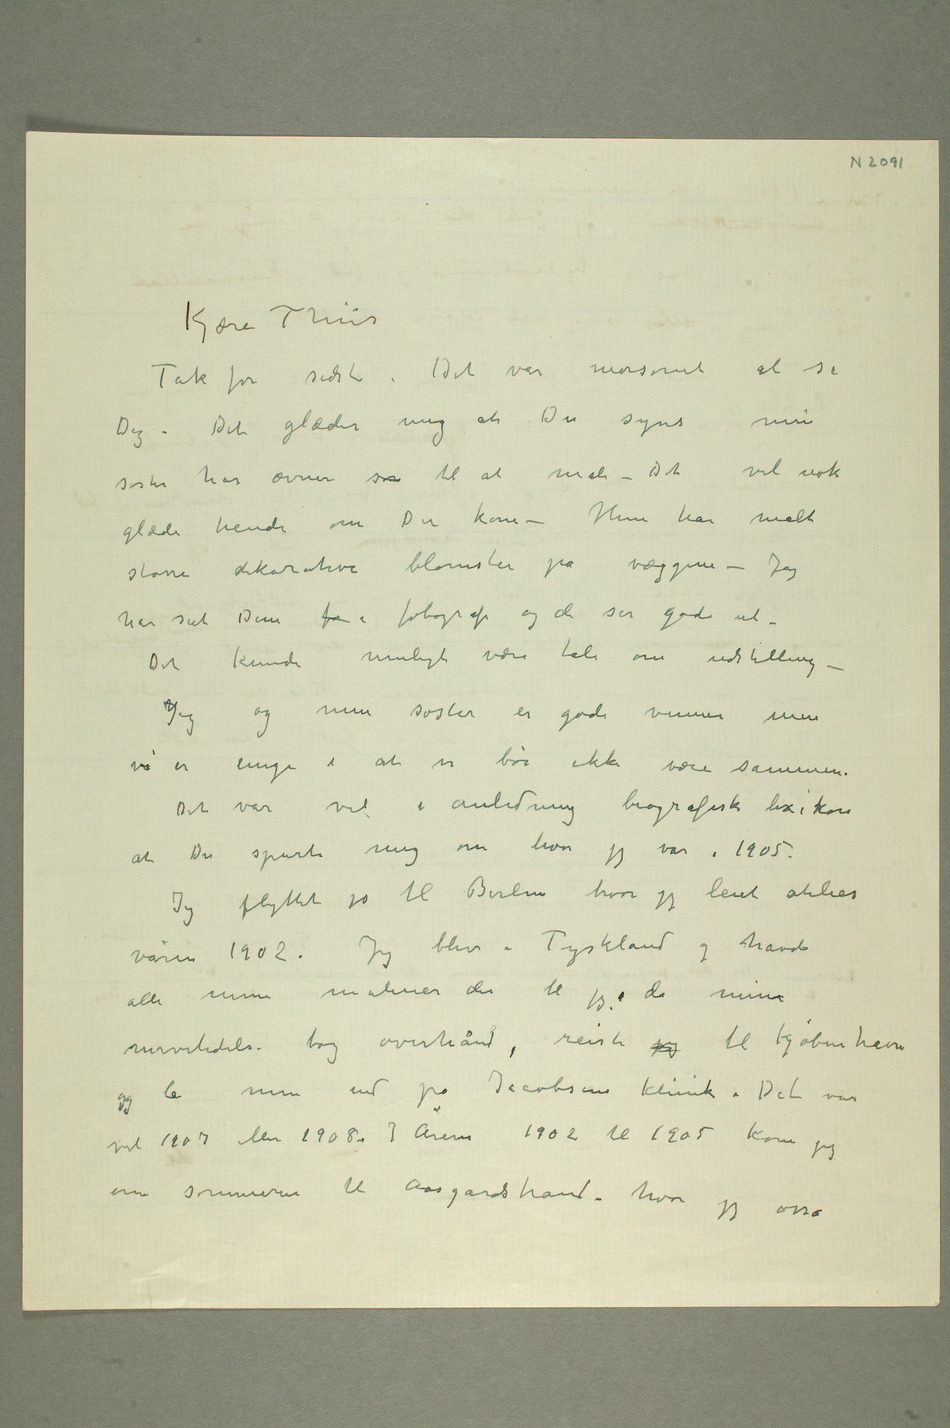 N 2091
Kjære Thiis
Tak for sidst. Det var morsomt at se
Dig – Det glæder mig at Du synes min
søster har ævner til at male – Det vil nok
glæde hende om Du kom – Hun har malt
større dekorative blomster på væggene – Jeg
har set dem i fotografi og de ser gode ut –
Det kunde muligt være tale om udstilling –
Jeg og min søster er gode venner men
vi er enige i at vi bør ikke være sammen.
Det var vel i anledning biografisk lexikon
at Du spurte mig om hvor jeg var i 1905.
Jeg flyttet jo til Berlin hvor jeg leiet atelier
våren 1902. Jeg blev i Tyskland og havde
alle mine malerier der til jeg, da min
nervelidelse tog overhånd, reiste til Kjøbenhavn
og la mig ind på Jacobsens klinik. Det var
vel 1907 eller 1908. I Årene 1902 til 1905 kom jeg
om sommeren til Aasgårdstrand – hvor jeg også